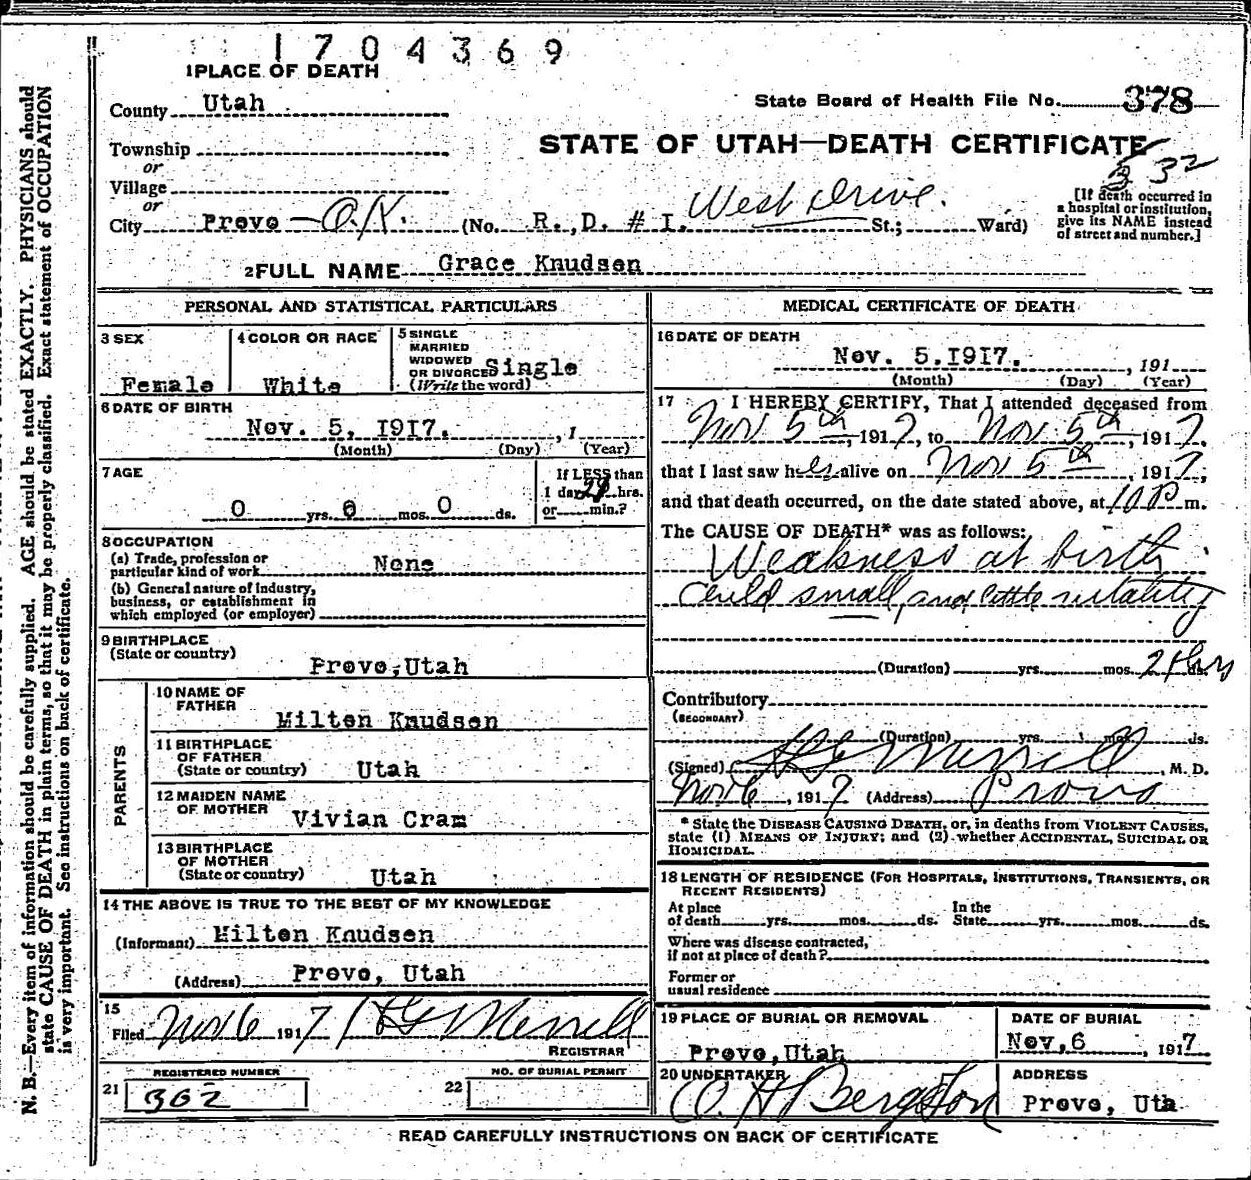 1704369
1 PLACE OF DEATH
County Utah
State Board of Health File No. 378
STATE OF UTAH—DEATH CERTIFICATE
Township
or
Village
or
City Provo - O.K. (No. R.,D. # I. West Drive. St.; Ward)
332
[If death occurred in a hospital or institution, give its NAME instead of street and number.]
2 FULL NAME Grace Knudsen
PERSONAL AND STATISTICAL PARTICULARS
3 SEX
Female
4 COLOR OR RACE
White
5 SINGLE
MARRIED
WIDOWED
OR DIVORCED Single
(Write the word)
6 DATE OF BIRTH
Nov. 5, I9I7. , 1
(Month) (Day) (Year)
7 AGE
0 yrs. 0 mos. 0 ds.
If LESS than
1 day, hrs.
or min.?
8 OCCUPATION
(a) Trade, profession or
particular kind of work None
(b) General nature of industry,
business, or establishment in
which employed (or employer)
9 BIRTHPLACE
(State or country)
Provo, Utah
PARENTS
10 NAME OF
FATHER
Milton Knudsen
11 BIRTHPLACE
OF FATHER
(State or country) Utah
12 MAIDEN NAME
OF MOTHER Vivian Cram
13 BIRTHPLACE
OF MOTHER
(State or country) Utah
14 THE ABOVE IS TRUE TO THE BEST OF MY KNOWLEDGE
(Informant) Milton Knudsen
(Address) Provo, Utah
15
Filed Nov 6 1917 H G Merrill
REGISTRAR
REGISTERED NUMBER
21 362
NO. OF BURIAL PERMIT
22
MEDICAL CERTIFICATE OF DEATH
16 DATE OF DEATH
Nov. 5.I9I7. , 191
(Month) (Day) (Year)
17 I HEREBY CERTIFY, That I attended deceased from
Nov 5th, 1917, to Nov 5th, 1917,
that I last saw her alive on Nov 5th, 1917,
and that death occurred, on the date stated above, at 10 P m.
The CAUSE OF DEATH* was as follows:
Weakness at birth
Child small, and little vitality
(Duration) yrs. mos. ds. hrs
Contributory
(SECONDARY)
(Duration) yrs. mos. ds.
(Signed) H G Merrill, M. D.
Nov 6, 1917 (Address) Provo
* State the DISEASE CAUSING DEATH, or, in deaths from VIOLENT CAUSES,
state (1) MEANS OF INJURY; and (2) whether ACCIDENTAL, SUICIDAL OR
HOMICIDAL.
18 LENGTH OF RESIDENCE (FOR HOSPITALS, INSTITUTIONS, TRANSIENTS, OR
RECENT RESIDENTS)
At place In the
of death yrs. mos. ds. State yrs. mos. ds.
Where was disease contracted,
if not at place of death?
Former or
usual residence
19 PLACE OF BURIAL OR REMOVAL
Provo, Utah
DATE OF BURIAL
Nov, 6 , 1917
20 UNDERTAKER
O. H Bergston
ADDRESS
Provo, Uta
READ CAREFULLY INSTRUCTIONS ON BACK OF CERTIFICATE
N. B.—Every item of information should be carefully supplied. AGE should be stated EXACTLY. PHYSICIANS should
state CAUSE OF DEATH in plain terms, so that it may be properly classified. Exact statement of OCCUPATION
is very important. See instructions on back of certificate.